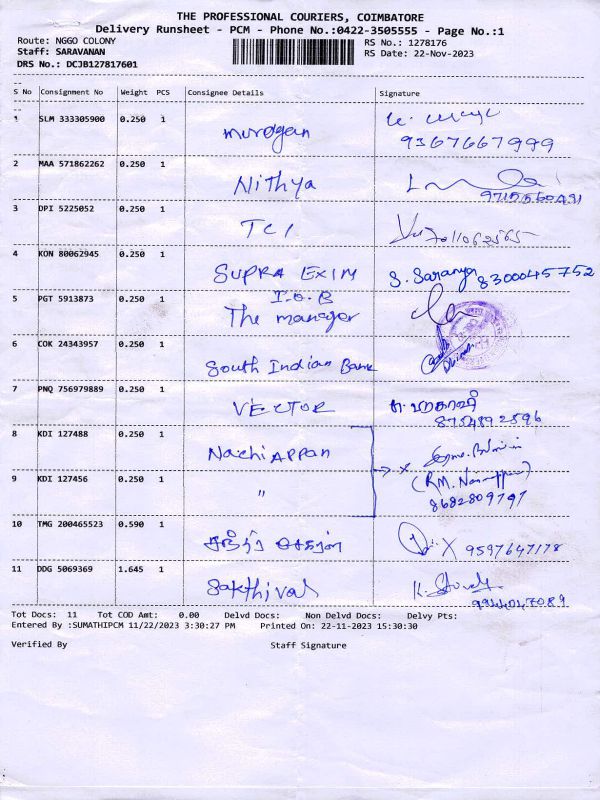 THE PROFESSIONAL COURIERS, COIMBATORE
Delivery Runsheet - PCM - Phone No.:0422-3505555 - Page No.:1
Route: NGGO COLONY RS No.: 1278176
Staff: SARAVANAN RS Date: 22-Nov-2023
DRS No.: DCJB127817601
S No Consignment No Weight PCS Consignee Details Signature
1 SLM 333305900 0.250 1 murogan
9367667999
2 MAA 571862262 0.250 1 Nithya
9715560491
3 DPI 5225052 0.250 1 TCI 7011062565
4 KON 80062945 0.250 1 SUPRA EXIM S. Saranya 8300045752
5 PGT 5913873 0.250 1 I.O.B
The manager
6 COK 24343957 0.250 1 South Indian Bank
7 PNQ 756979889 0.250 1 VECTOR
8754892596
8 KDI 127488 0.250 1 Nachiappan
9 KDI 127456 0.250 1 "
8682809797
10 TMG 200465523 0.590 1 சந்திர சேகரன் X 9597647178
11 DDG 5069369 1.645 1 Sakthival
9944047089
Tot Docs: 11 Tot COD Amt: 0.00 Delvd Docs: Non Delvd Docs: Delvy Pts:
Entered By :SUMATHIPCM 11/22/2023 3:30:27 PM Printed On: 22-11-2023 15:30:30
Verified By Staff Signature